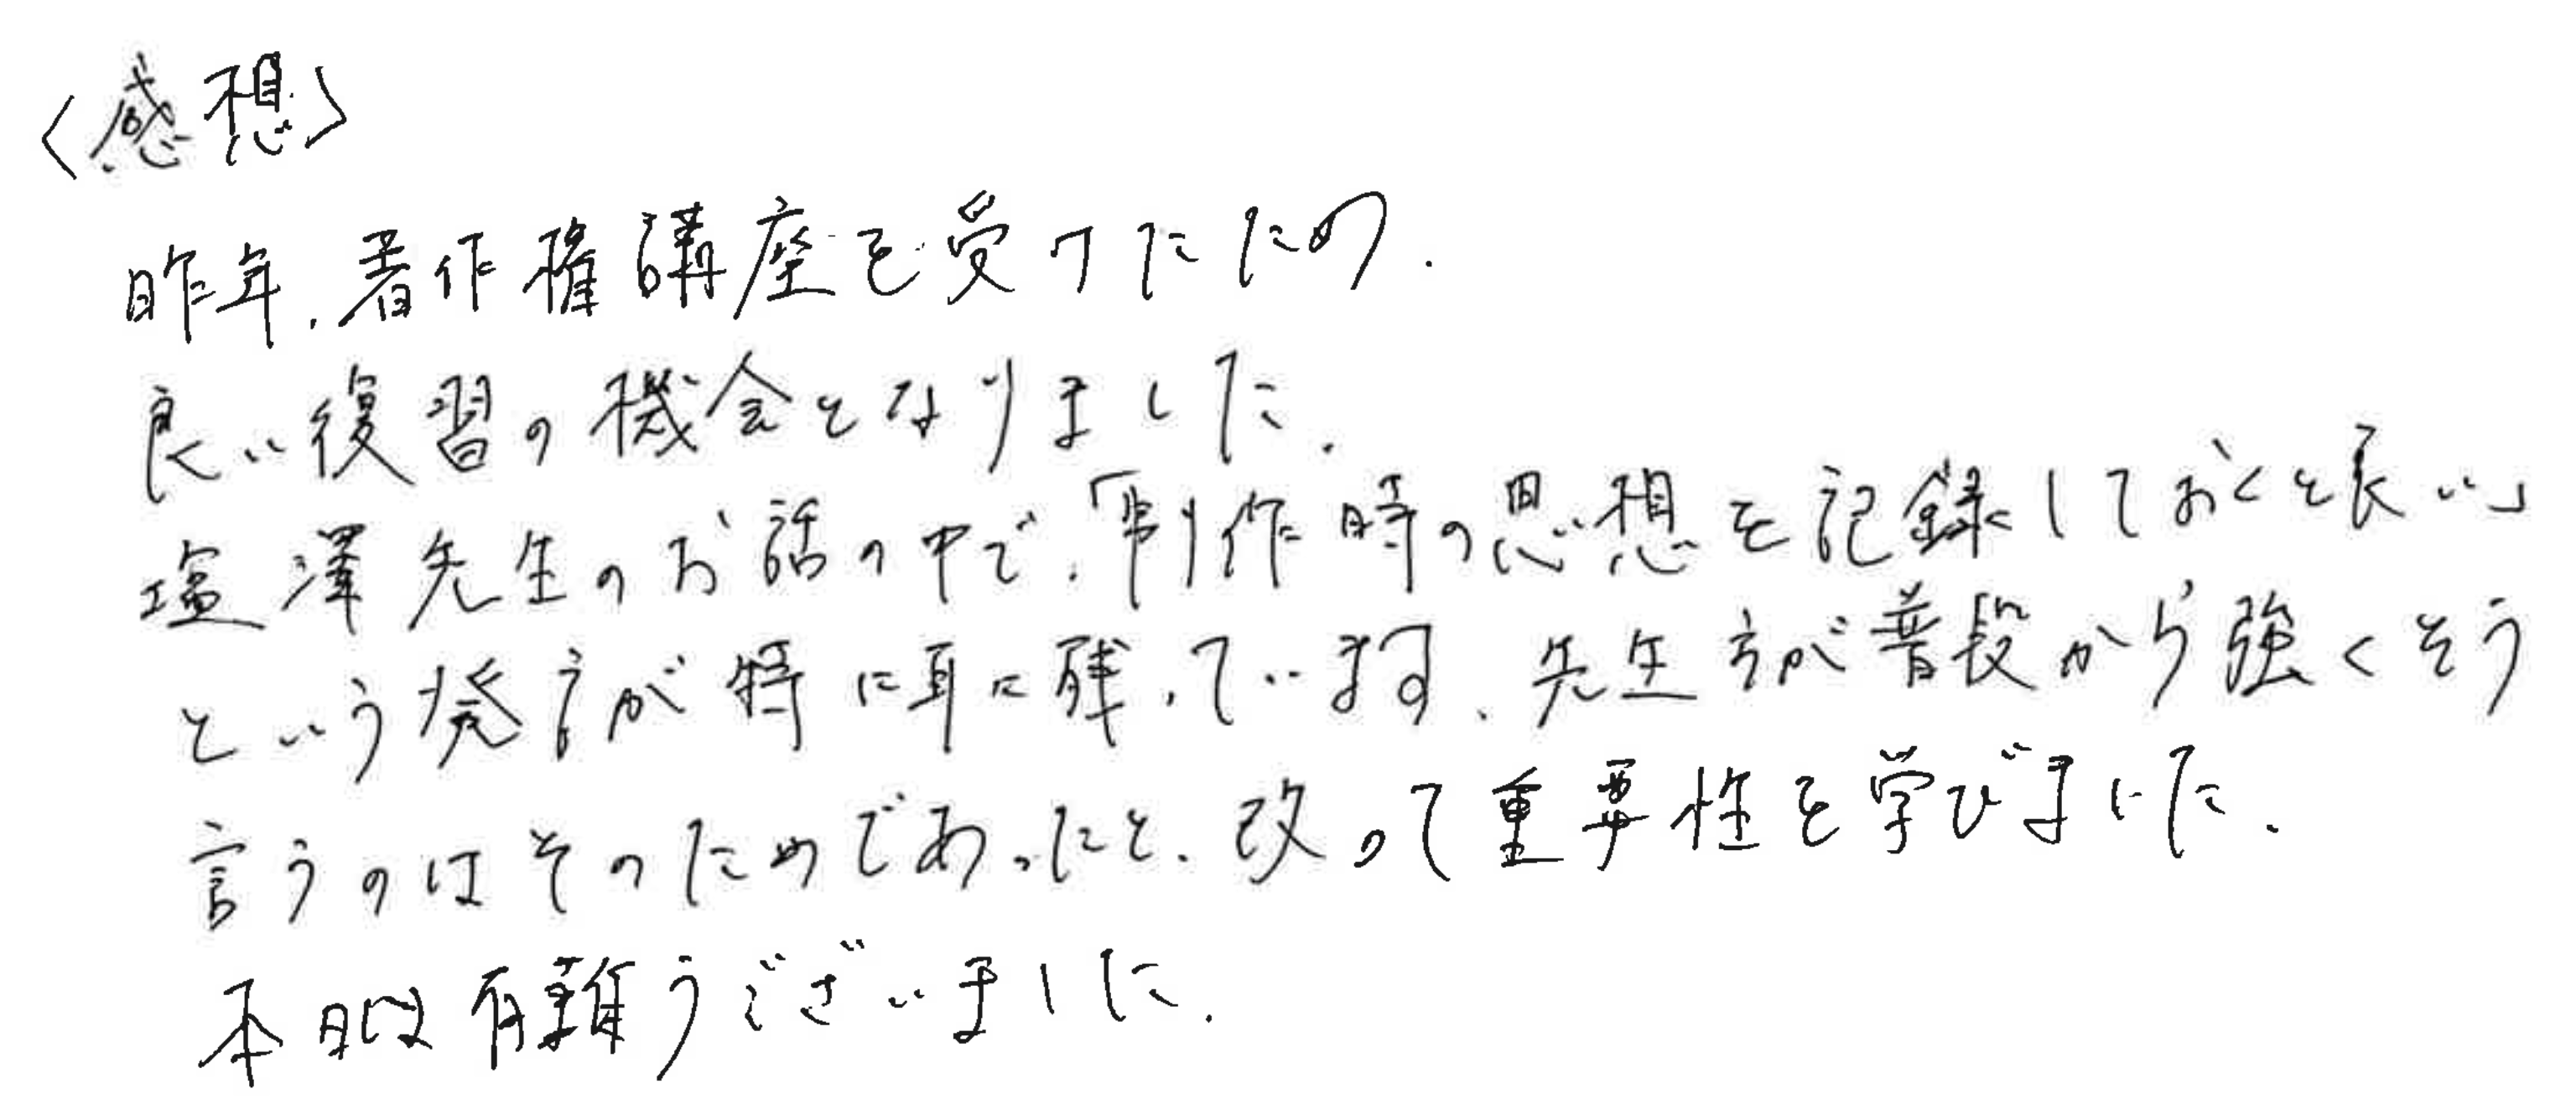 〈感想〉
昨年、著作権講座を受けたため、
良い復習の機会となりました。
塩澤先生のお話の中で、「制作時の思想を記録しておくと良い」
という発言が特に耳に残っています。先生方が普段から強くそう
言うのはそのためであったと、改って重要性を学びました。
本日は有難うございました。